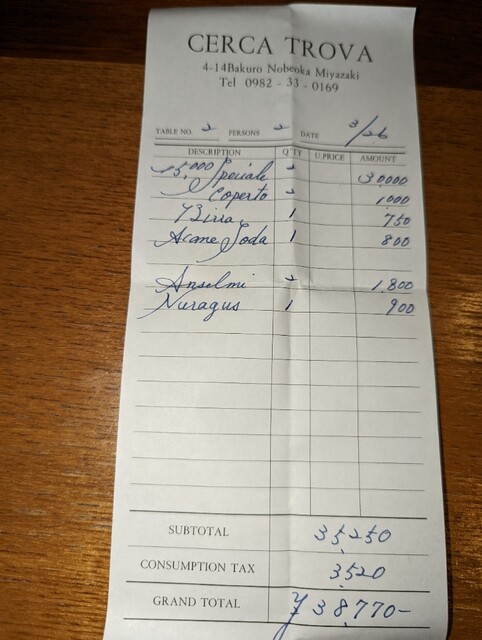 CERCA TROVA
4-14Bakuro Nobeoka Miyazaki
Tel 0982 - 33 - 0169
TABLE NO. 2 PERSONS 2 DATE 3/26
DESCRIPTION Q'TY U.PRICE AMOUNT
15,000 Speciale 2 30000
Coperto 2 1,000
Birra 1 750
Acame Soda 1 800
Anselmi 2 1,800
Nuragus 1 900
SUBTOTAL 35,250
CONSUMPTION TAX 3,520
GRAND TOTAL ¥38,770-